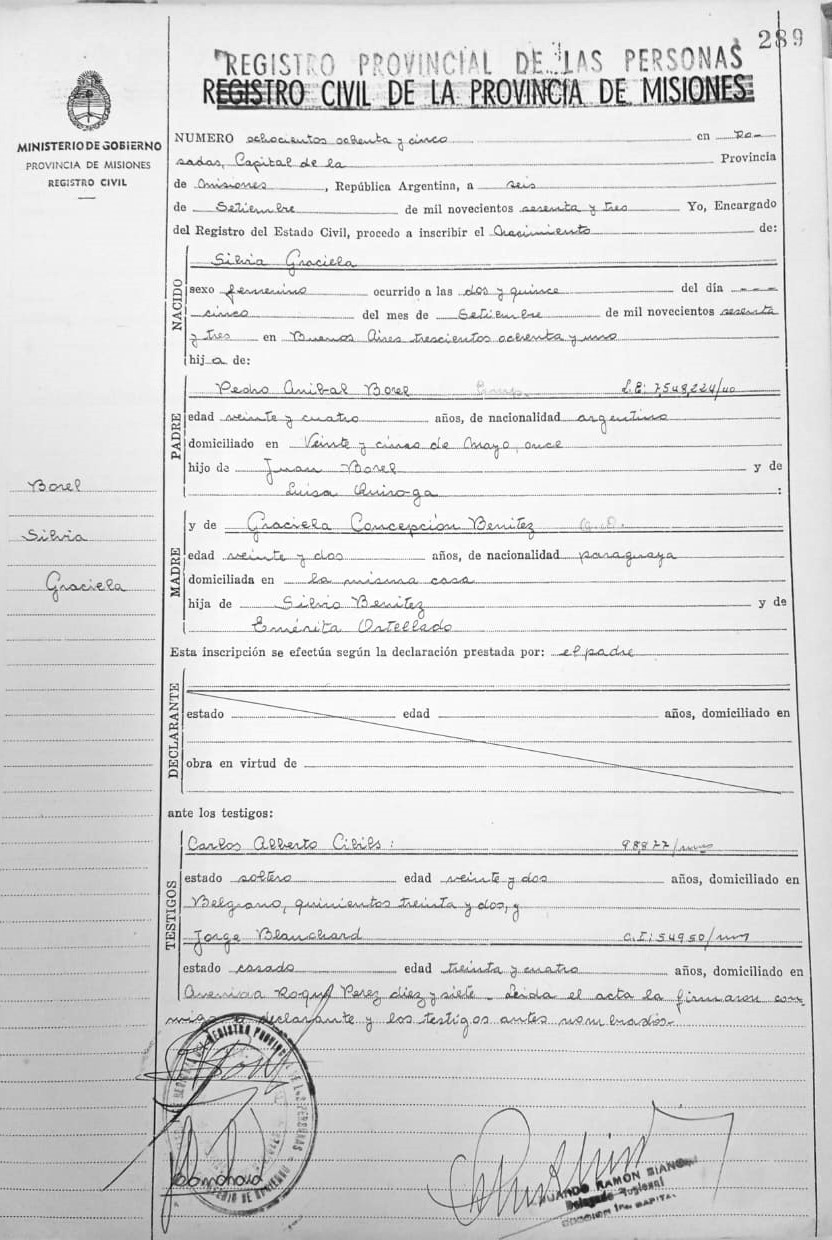 289
REGISTRO PROVINCIAL DE LAS PERSONAS
REGISTRO CIVIL DE LA PROVINCIA DE MISIONES
MINISTERIO DE GOBIERNO
PROVINCIA DE MISIONES
REGISTRO CIVIL
NUMERO ochocientos ochenta y cinco en Po-
sadas, Capital de la Provincia
de Misiones, República Argentina, a seis
de Setiembre de mil novecientos sesenta y tres Yo, Encargado
del Registro del Estado Civil, procedo a inscribir el Nacimiento de:
NACIDO
Silvia Graciela
sexo femenino ocurrido a las dos y quince del día ---
cinco del mes de Setiembre de mil novecientos sesenta
y tres en Buenos Aires trescientos ochenta y uno
hija de:
PADRE
Pedro Anibal Borel L.E: 7,548,224/
edad veinte y cuatro años, de nacionalidad argentino
domiciliado en Veinte y cinco de Mayo, once
hijo de Juan Borel y de
Luisa Quiroga :
MADRE
y de Graciela Concepción Benitez Q.D.
edad veinte y dos años, de nacionalidad paraguaya
domiciliada en la misma casa
hija de Silvio Benitez y de
Emérita Ortellado
Borel
Silvia
Graciela
Esta inscripción se efectúa según la declaración prestada por: el padre
DECLARANTE
estado edad años, domiciliado en
obra en virtud de
ante los testigos:
TESTIGOS
Carlos Alberto Cibils :
estado soltero edad veinte y dos años, domiciliado en
Belgrano, quinientos treinta y dos, y
Jorge Blanchard C.I: 54950/mns
estado casado edad treinta y cuatro años, domiciliado en
Avenida Roque Perez diez y siete - Leida el acta la firmaron con-
migo el declarante y los testigos antes nombrados.-
REGISTRO PROVINCIAL DE LAS PERSONAS
Blanchard
RAMON BIANCHI
Delegado Regional